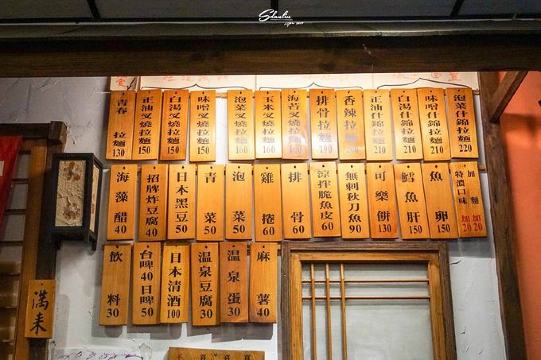 青春拉麵 130
正油叉燒拉麵 150
白湯叉燒拉麵 150
味噌叉燒拉麵 150
泡菜叉燒拉麵 160
玉米叉燒拉麵 160
海苔叉燒拉麵 160
排骨拉麵 190
香辣拉麵
正油什錦拉麵 210
白湯什錦拉麵 210
味噌什錦拉麵 210
泡菜什錦拉麵 220
海藻醋 40
招牌炸豆腐 40
日本黑豆 50
青菜 50
泡菜 50
雞捲 60
排骨 60
涼拌脆魚皮 60
無刺秋刀魚 90
可樂餅 130
鱈魚肝 150
魚卵 150
特濃口味 加20
加麵 加20
飲料 30
台啤 40
日啤 50
日本清酒 100
溫泉豆腐 30
溫泉蛋 30
麻薯 40
滿来